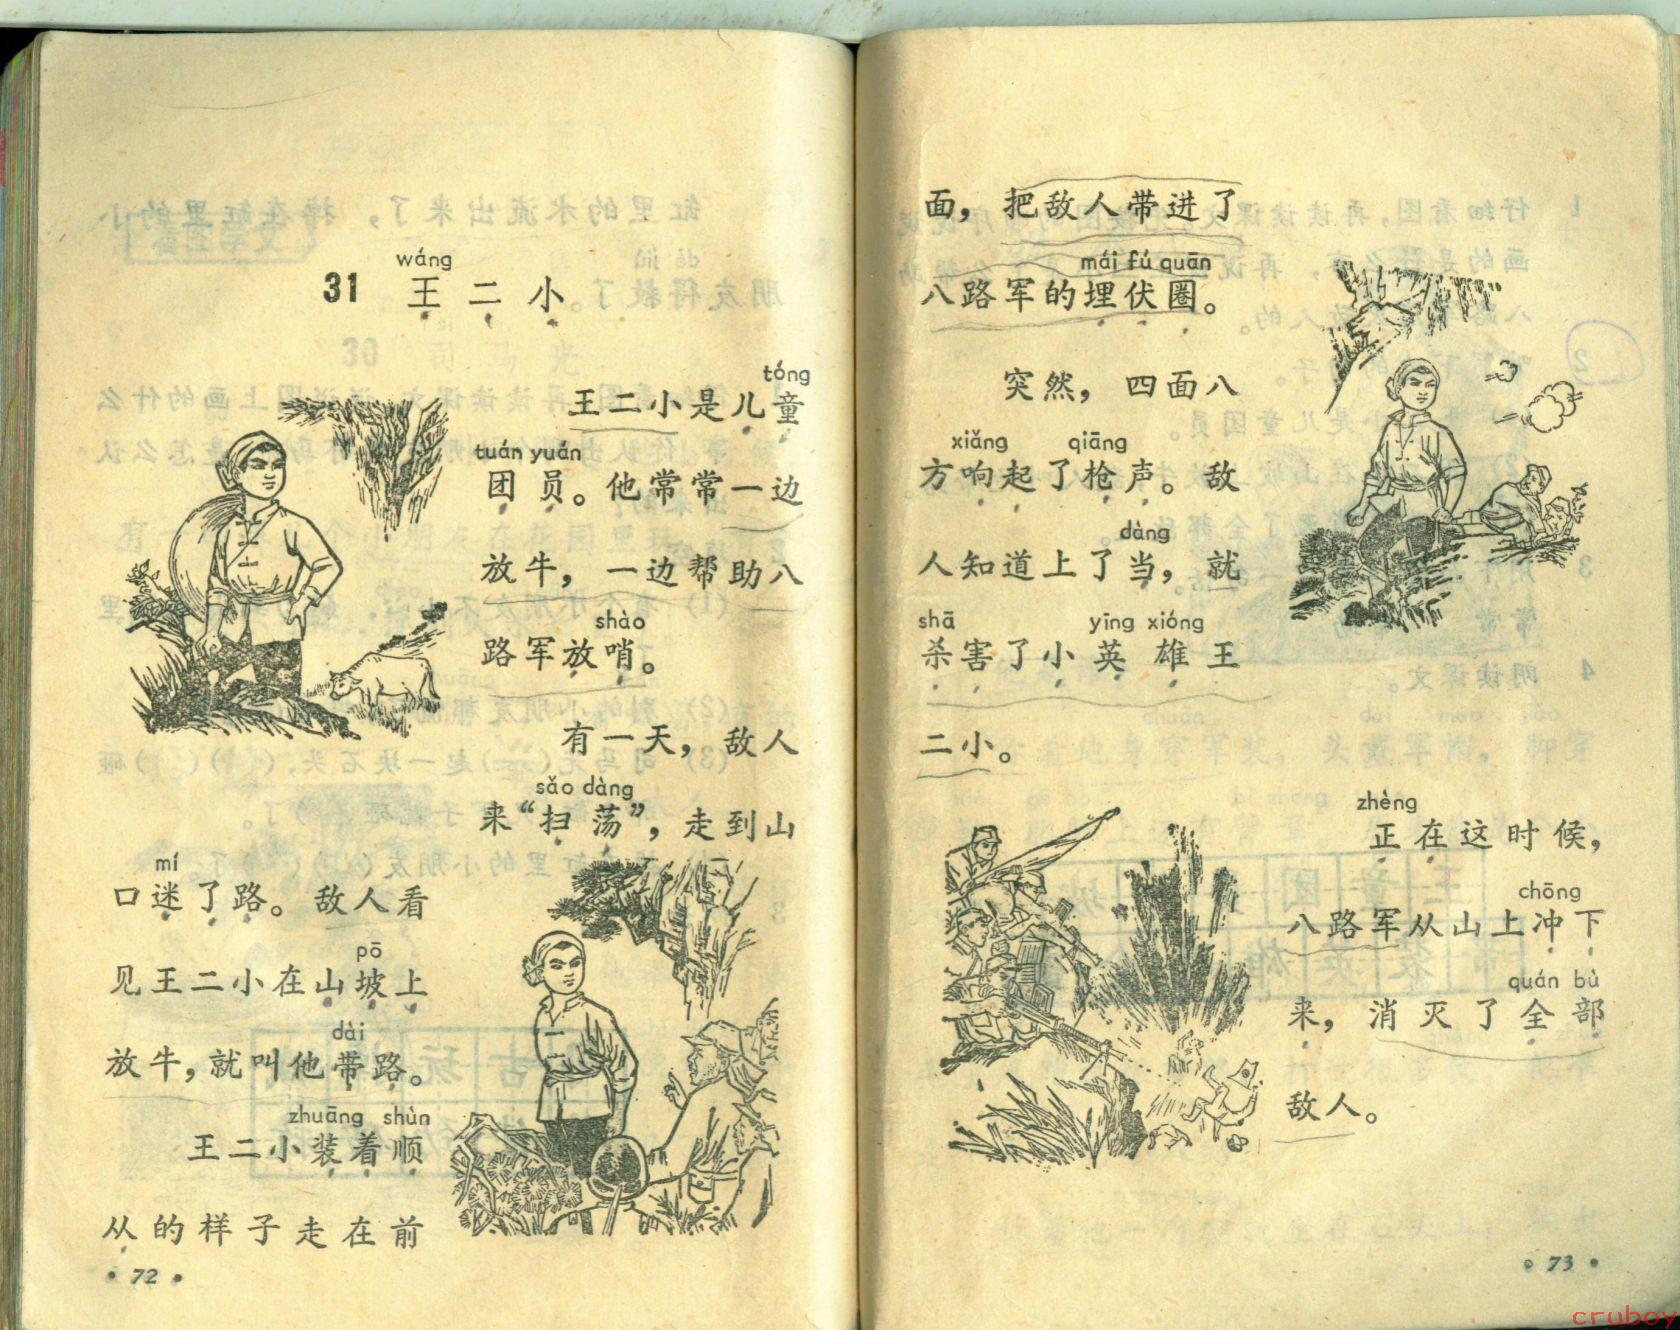 wáng
31 王二小
tóng
王二小是儿童
tuán yuán
团员。他常常一边
放牛，一边帮助八
shào
路军放哨。
有一天，敌人
sǎo dàng
来“扫荡”，走到山
mí
口迷了路。敌人看
pō
见王二小在山坡上
dài
放牛，就叫他带路。
zhuāng shùn
王二小装着顺
从的样子走在前
• 72 •
面，把敌人带进了
mái fú quān
八路军的埋伏圈。
突然，四面八
xiǎng qiāng
方响起了枪声。敌
dàng
人知道上了当，就
shā yīng xióng
杀害了小英雄王
二小。
zhèng
正在这时候，
chōng
八路军从山上冲下
quán bù
来，消灭了全部
敌人。
• 73 •
cruboy